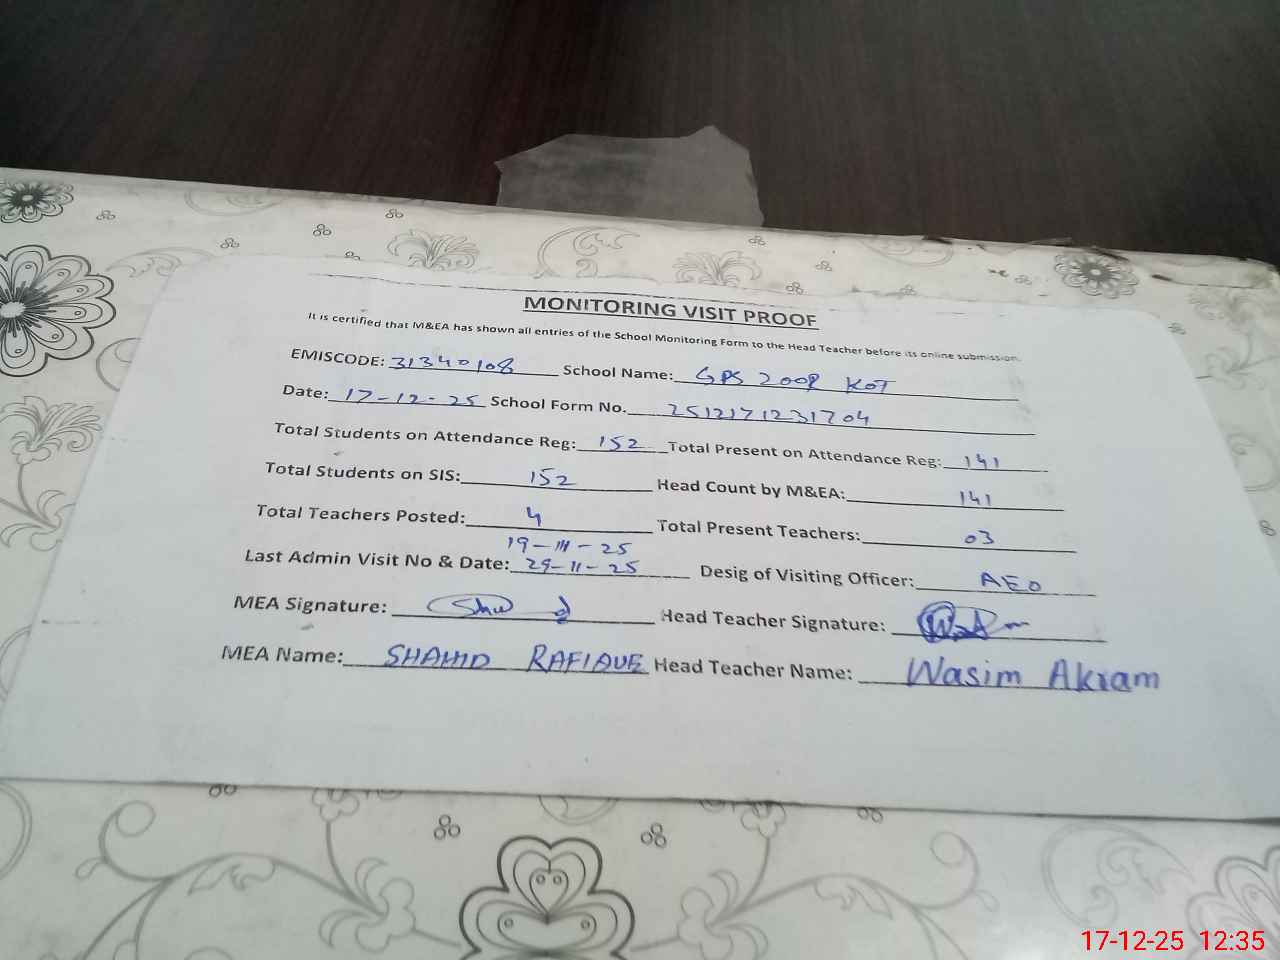 MONITORING VISIT PROOF
It is certified that M&EA has shown all entries of the School Monitoring Form to the Head Teacher before its online submission.
EMISCODE: 31340108 School Name: GPS ZOOR KOT
Date: 17-12-25 School Form No. 2512171231704
Total Students on Attendance Reg: 152 Total Present on Attendance Reg: 141
Total Students on SIS: 152 Head Count by M&EA: 141
Total Teachers Posted: 4 Total Present Teachers: 03
19-11-25
Last Admin Visit No & Date: 29-11-25 Desig of Visiting Officer: AEO
MEA Signature: Head Teacher Signature:
MEA Name: SHAHID RAFIQUE Head Teacher Name: Wasim Akram
17-12-25 12:35